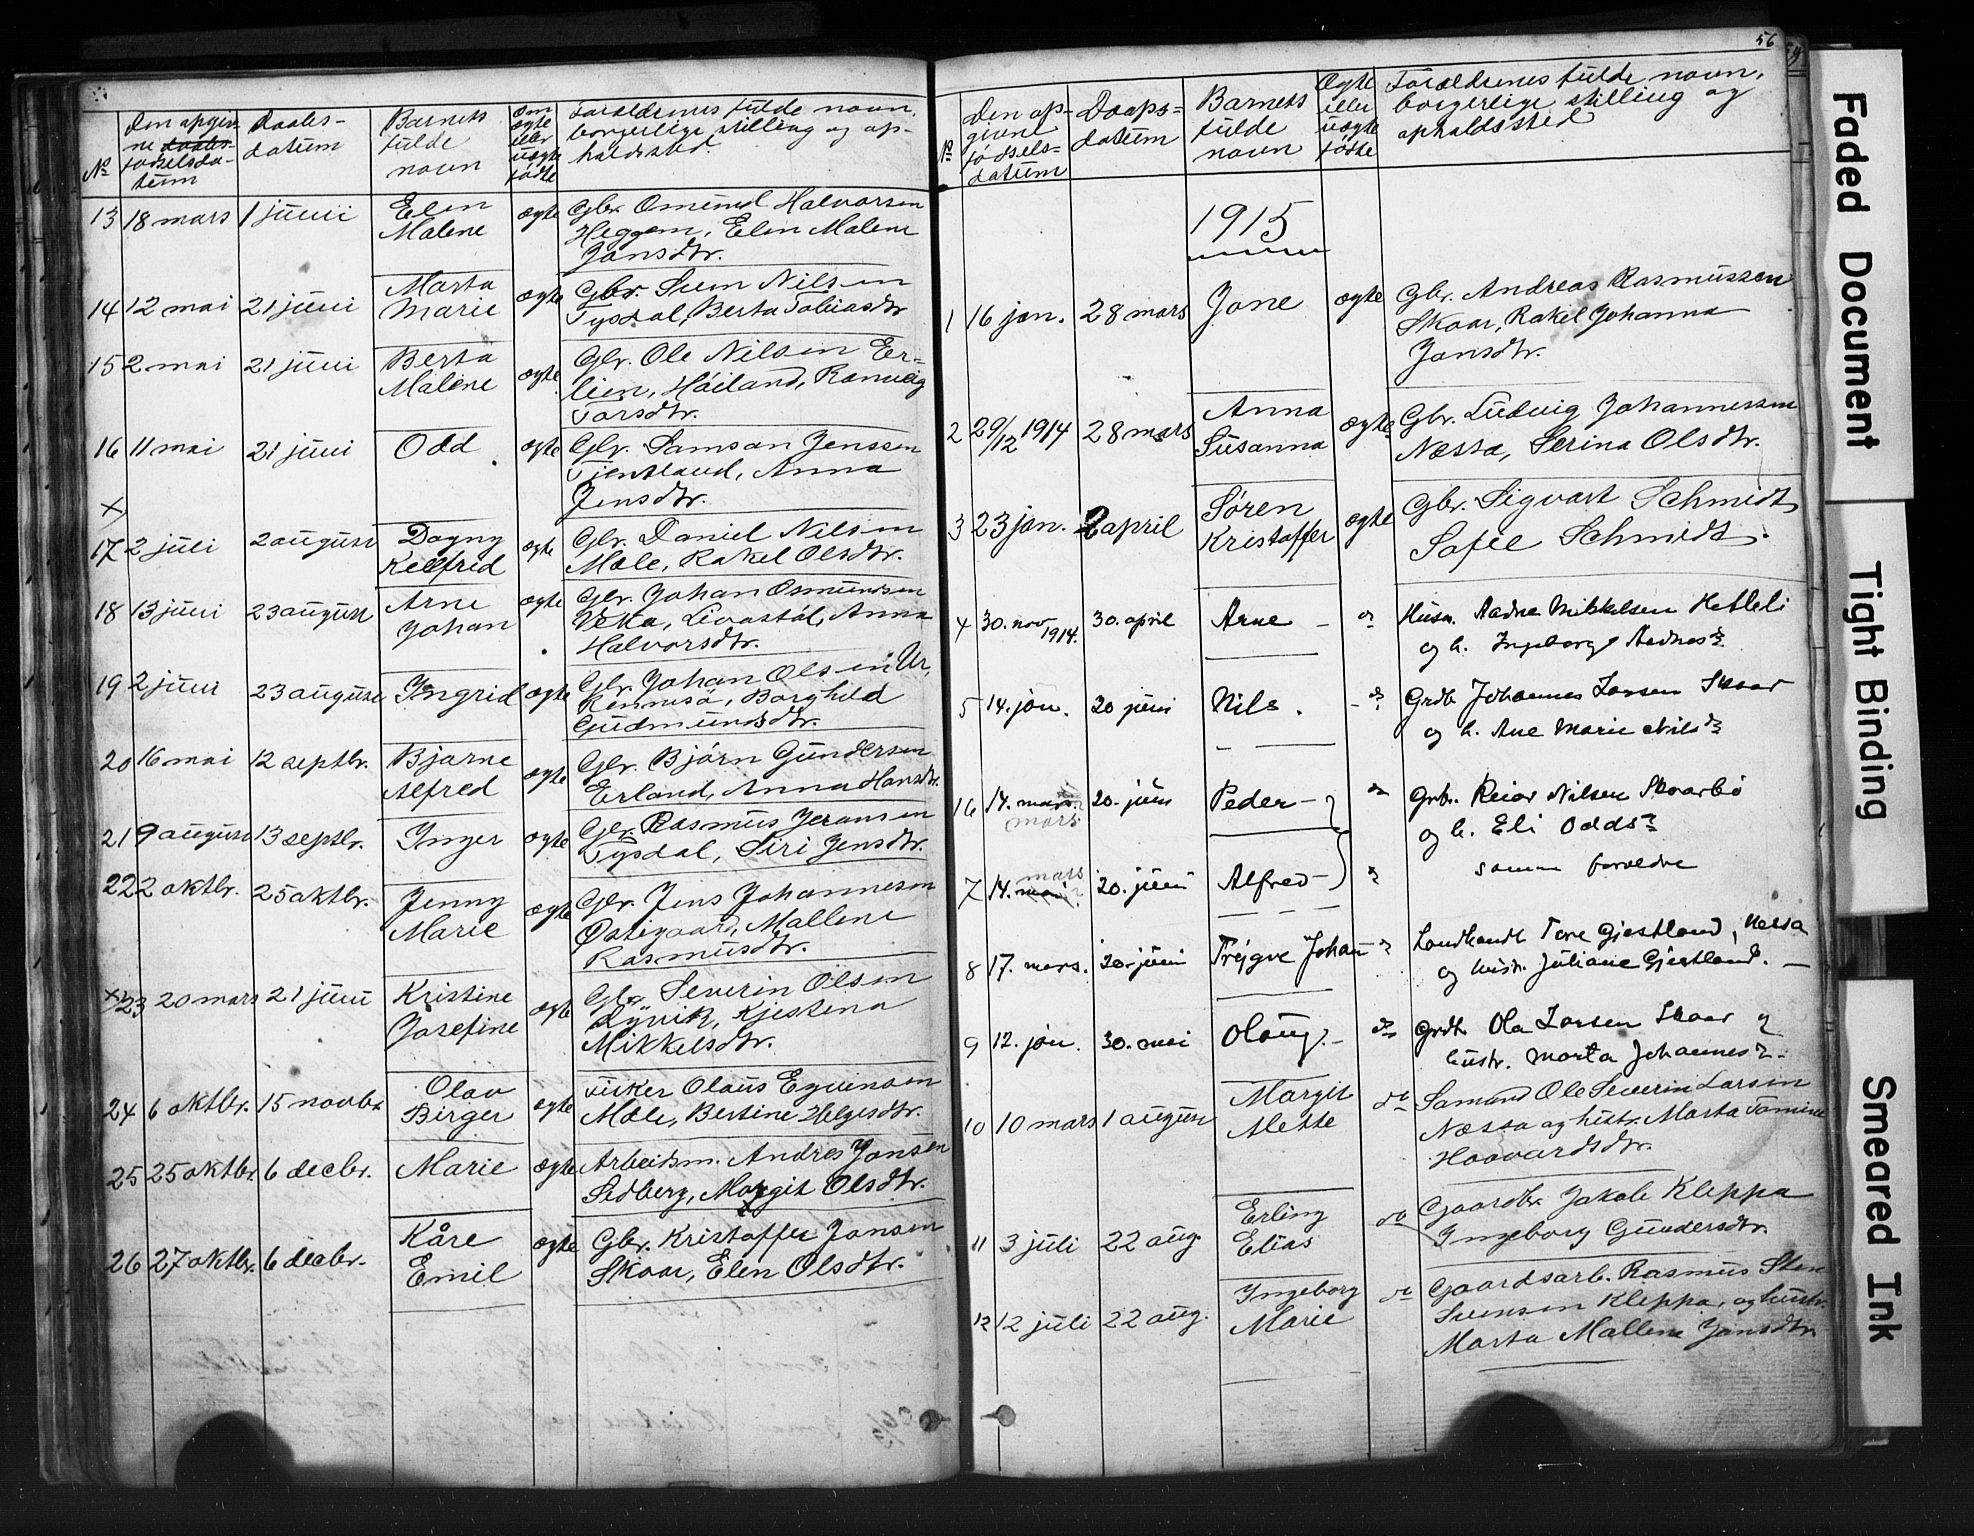 Nº
Den opgiv-
ne daabs-
fødselsda-
tum
Daabs-
datum
Barnets
fulde
navn
Om
ægte
eller
uægte
fødte
Forældrenes fulde navn,
borgerlige stilling og op-
holdssted.
13 18 mars 1 juni Elen Malene ægte Gbr. Omund Halvorsen
Heggem, Elen Malene
Jonsdtr.
14 12 mai 21 juni Marta Marie ægte Gbr. Sven Nilsen
Tysdal, Berta Tobiasdtr
15 2 mai 21 juni Berta Malene ægte Gbr. Ole Nilsen Er-
lien, Høiland, Ranveig
Torsdtr.
16 11 mai 21 juni Odd ægte Gbr. Samson Jenssen
Tjentland, Anna
Jensdtr.
X
17 2 juli 2 august Dagny Kelfrid ægte Gbr. Daniel Nilsen
Mæle, Rakel Olsdtr.
18 13 juni 23 august Arne Johan ægte Gbr. Johan Osmundsen
Livastøl, Anna
Halvorsdtr.
19 2 juni 23 august Ingrid ægte Gbr. Johan Olsen Ur,
Rennesø, Borghild
Gudmundsdtr.
20 16 mai 12 septbr. Bjarne Alfred ægte Gbr. Bjørn Gundersen
Erland, Anna Hansdtr.
21 9 august 13 septbr. Inger ægte Gbr. Rasmus Jeransen
Tysdal, Siri Jensdtr.
22 2 oktbr. 25 oktbr. Jenny Marie ægte Gbr. Jens Johannesen
Østegaard, Mallene
Rasmusdtr.
X 23 20 mars 21 juni Kristine Josefine ægte Gbr. Severin Olsen
Kjestena
Mikkelsdtr.
24 6 oktbr. 15 novbr. Olav Birger ægte Fisker Olaus Eyvenson
Mæle, Bertine Helgesdtr.
25 25 oktbr. 6 decbr. Marie ægte Arbeidsm. Andres Jonsen
Sedberg, Margit Olsdtr.
26 27 oktbr. 6 decbr. Kåre Emil ægte Gbr. Kristoffer Jonsen
Skaar, Elen Olsdtr.
56
Nº
Den op-
givne
fødsels-
datum
Daaps-
datum
Barnets
fulde
navn
Ægte
eller
uægte
fødte
Forældrenes fulde navn,
borgerlige stilling og
opholdssted
1915
1 16 jan. 28 mars Jone ægte Gbr. Andreas Rasmussen
Skaar, Rakel Johanna
Jonsdtr.
2 29/12 1914 28 mars Anna Susanna ægte Gbr. Ludvig Johannessen
Næssa, Serina Olsdtr.
3 23 jan. 2 april Søren Kristoffer ægte Gbr. Sigvart Schmidt
Sofie Schmidt.
4 30. nov 1914. 30. april Arne - do Husm. Aadne Mikkelsen Hetleli
og h. Ingeborg Aadnesdr
5 14. jan. 20 juni Nils. - do Grdb. Johannes Larsen Skaar
og h. Ane Marie Nilsdr
16 14. mars mars 20. juni Peder - do Grb. Reiar Nilsen Skaarbø
og h. Eli Oddsdr
7 14. mai mars 20. juni Alfred - do samme forældre
8 17. mars. 20. juni Trygve Johan do Landhandl. Tore Gjestland, Næssa
og hustr. Juliane Gjestland. -
9 12. jan. 30. mai Olaug. - do Grdb. Ola Larsen Skaar og
hustr. Marta Johannesdr.
10 10 mars 1 august Margit Mette do Sømand Ole Severin Larsen
Næssa og hustr. Marta Tomine
Haavardsdtr.
11 3 juli 22 aug. Erling Elias do Gaardbr. Jakob Kleppa
Ingeborg Gundersdtr.
12 12 juli 22 aug. Ingeborg Marie do Gaardsarb. Rasmus Sten
Svensen Kleppa, og hustr.
Marta Mallene Jonsdtr
Faded Document
Tight Binding
Smeared Ink